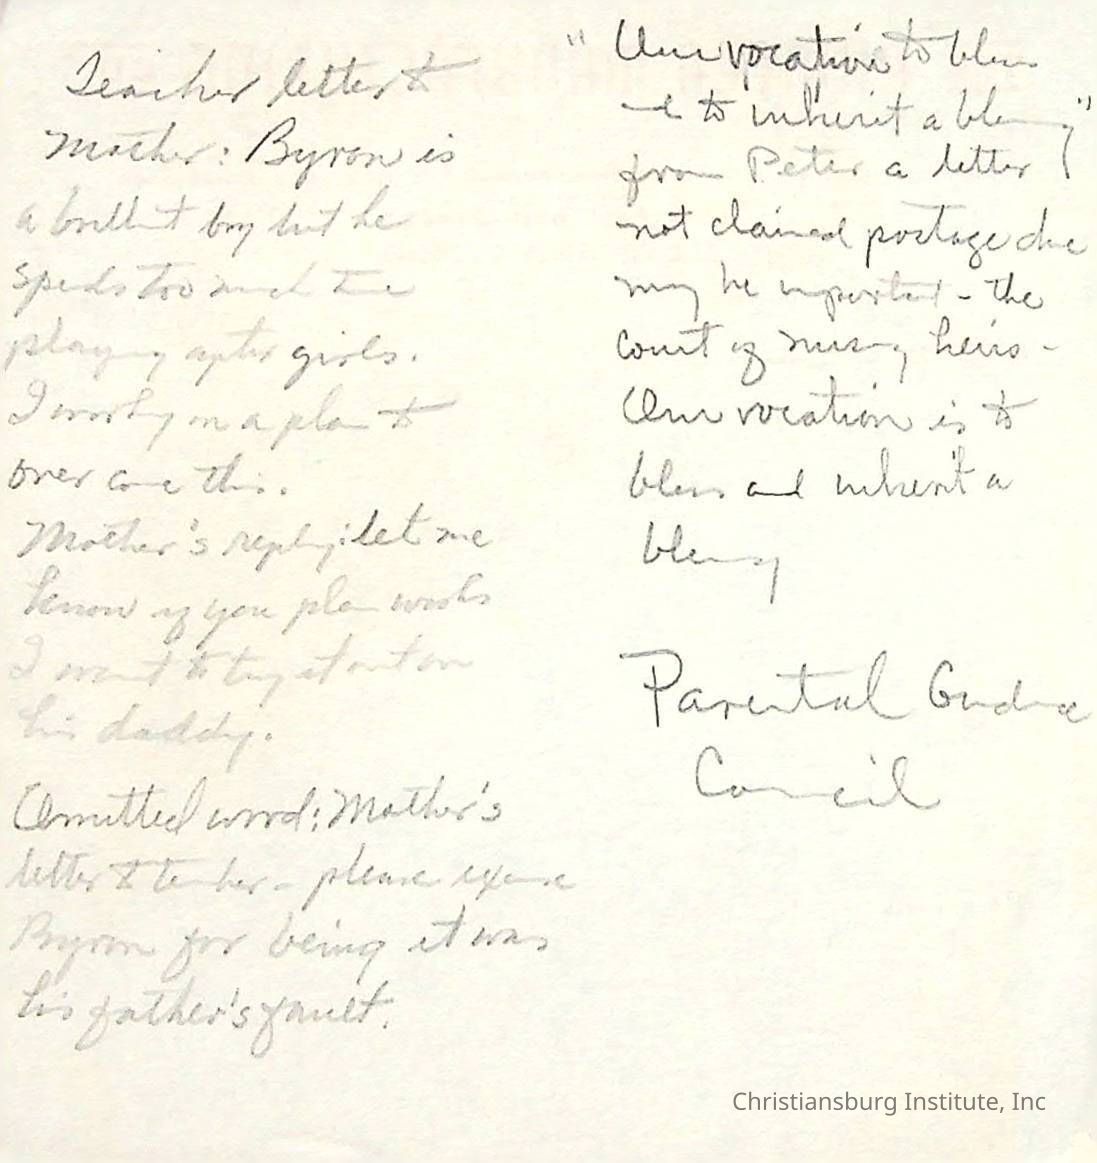 Teacher letter to
Mother: Byron is
a brillint boy but he
speds too much time
playing after girls.
I workg on a plan to
over come this.
Mother's reply: let me
know if you plan works
I want to try it out on
his daddy.
Omitted word: Mother's
letter to teacher - please excuse
Byron for being it was
his father's fault.
"Our vocation to bless
to inherit a blessing"
from Peter a letter
not claimed postage due
may be important - the
court of missing heirs -
Our vocation is to
bless and inherit a
blessing
Parental Guidance
Council
Christiansburg Institute, Inc